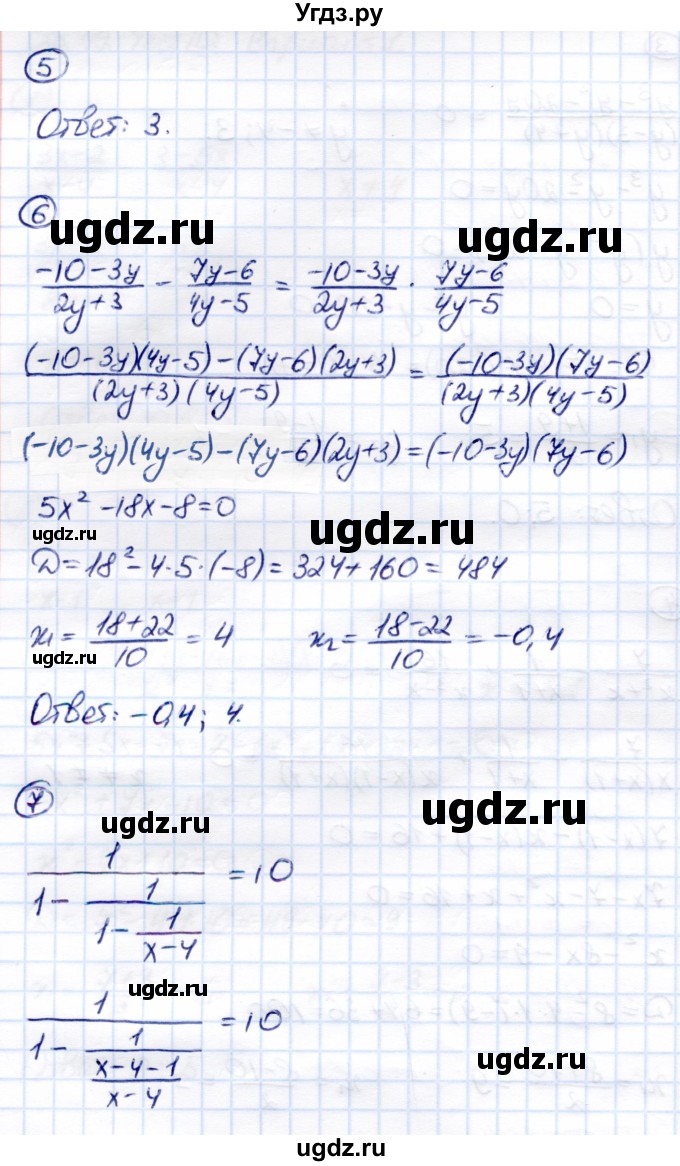 Угдз.ру
5
Ответ: 3.
6
ugdz.ru ugdz.ru
(-10-3y)/(2y+3) - (7y-6)/(4y-5) = (-10-3y)/(2y+3) · (7y-6)/(4y-5)
((-10-3y)(4y-5)-(7y-6)(2y+3))/((2y+3)(4y-5)) = ((-10-3y)(7y-6))/((2y+3)(4y-5))
(-10-3y)(4y-5)-(7y-6)(2y+3)=(-10-3y)(7y-6)
5x²-18x-8=0
ugdz.ru ugdz.ru
D=18²-4·5·(-8)=324+160=484
x₁=(18+22)/10=4 x₂=(18-22)/10=-0,4
ugdz.ru
Ответ: -0,4; 4.
7
ugdz.ru ugdz.ru
1/(1-1/(1-1/(x-4)))=10
ugdz.ru
1/(1-1/((x-4-1)/(x-4)))=10
ugdz.ru